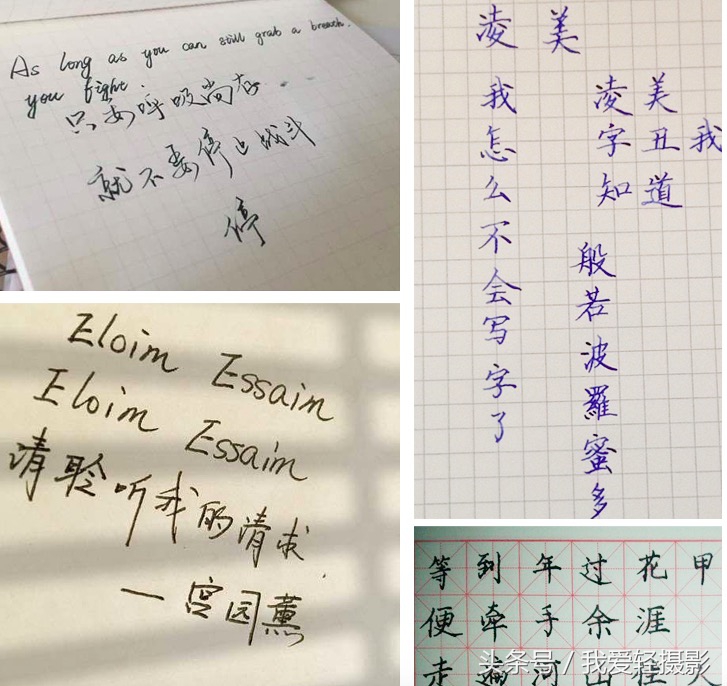 As long as you can still grab a breath.
you fight.
只要呼吸尚存..
就不要停止战斗
停
Eloim Essaim
Eloim Essaim
请聆听我的请求
一宫园薰
凌美
我怎么不会写字了
凌美
字丑我
知道
般若波羅蜜多
等到年过花甲
便牵手余涯
走遍河山
头条号 / 我爱轻摄影